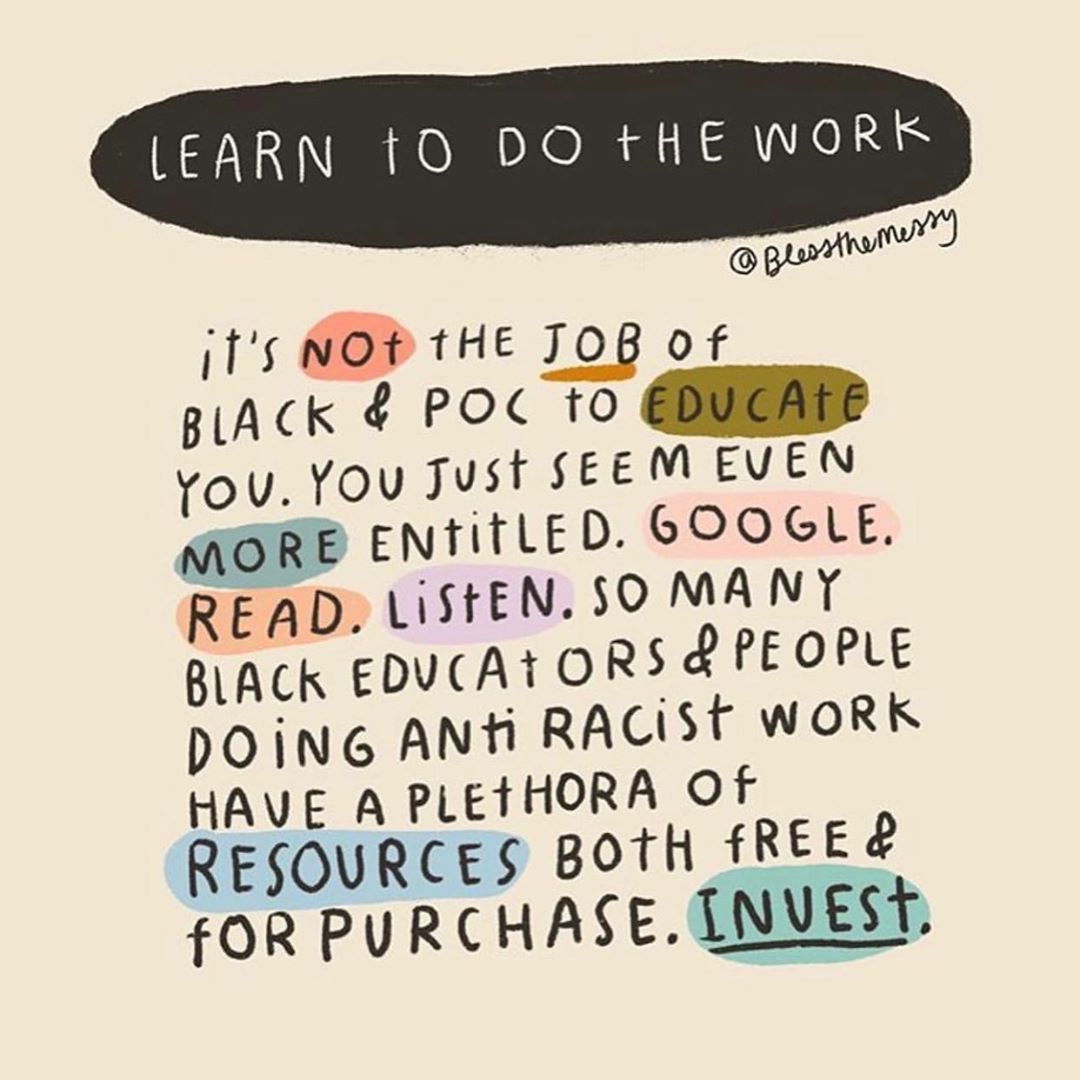 LEARN tO DO tHE WORK
@Blessthemessy
it's NOt tHE JOB Of
BLACK & POC tO EDUCAtE
YOU. YOU JUSt SEEM EVEN
MORE ENtitLED. GOOGLE.
READ. LiStEN. SO MANY
BLACK EDUCAtORS & PEOPLE
DOiNG ANti RACiSt WORK
HAVE A PLEtHORA Of
RESOURCES BOtH fREE &
fOR PURCHASE. INVESt.